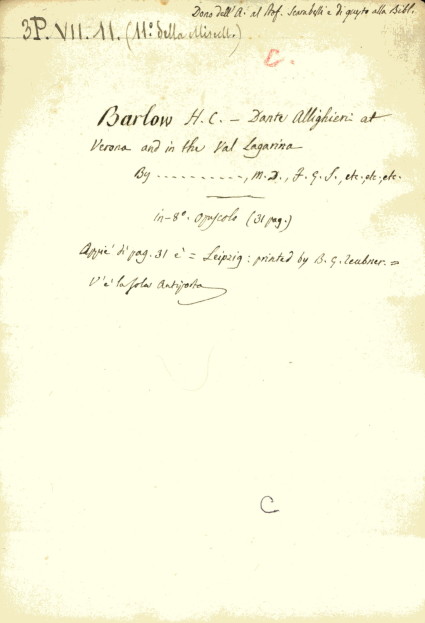 Dono dell'A. al Prof. Scarabelli e di questo alla Bibl.
3P. VII. 11. (11º della Miscell.)
C.
Barlow H. C. — Dante Allighieri at
Verona and in the Val Lagarina
By .........., M.D., F.G.S., etc., etc., etc.
in-8º. opuscolo (31 pag.)
Appiè di pag. 31 è = Leipzig: printed by B. G. Teubner. =
V'è la sola Antiporta
C